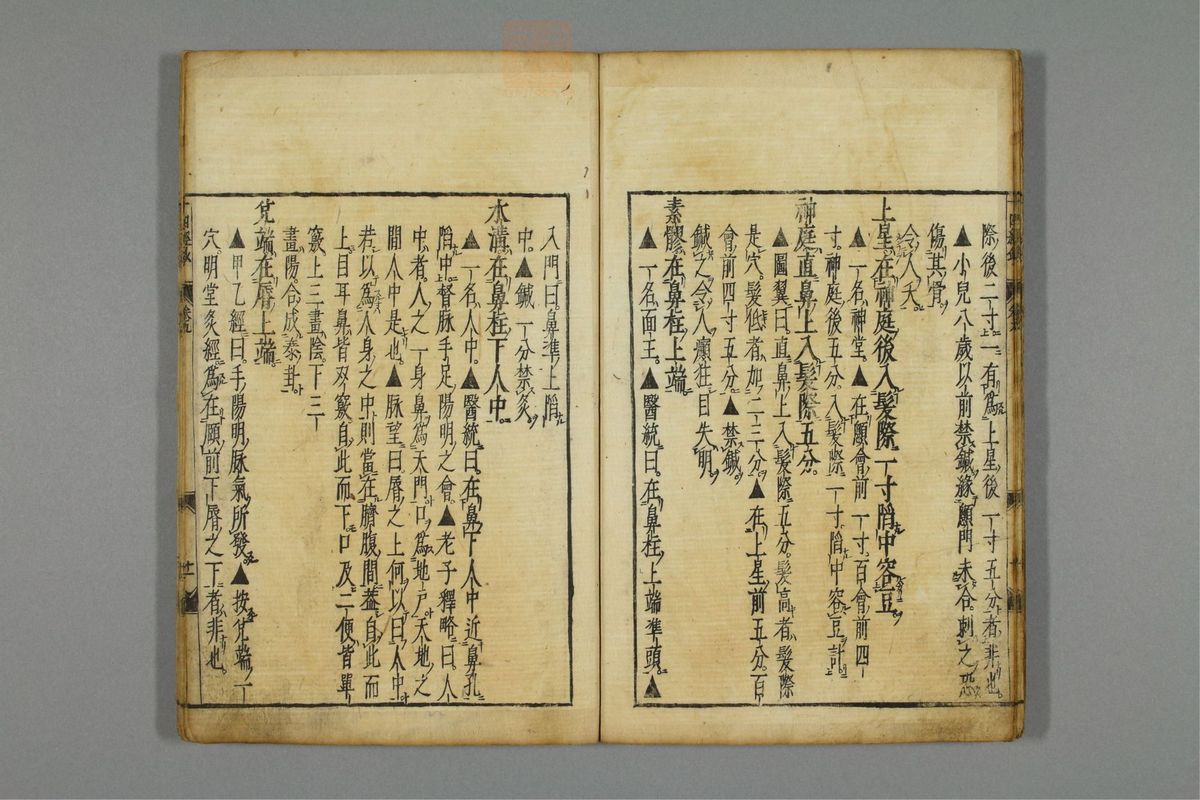 際後二寸一有為上星後一寸五分者非也
▲小兒八歲以前禁鍼緣顖門未合刺之恐
傷其骨
令人夭
上星在神庭後入髮際一寸陷中容豆
▲一名神堂▲在顖會前一寸百會前四
寸神庭後五分入髮際一寸陷中容豆計
神庭直鼻上入髮際五分
▲圖翼曰直鼻上入髮際五分髮高者髮際
是穴髮低者加二三分▲在上星前五分百
會前四寸五分▲禁鍼
鍼之令人癲狂目失明
素髎在鼻柱上端
▲一名面王▲醫統曰在鼻柱上端準頭▲
入門曰鼻準上陷
中▲鍼一分禁灸
水溝在鼻柱下人中
▲一名人中▲醫統曰在鼻下人中近鼻孔
陷中督脉手足陽明之會▲老子釋略曰人
中者人之一身鼻為天門口為地戶天地之
間人中是也▲脉望曰脣之上何以曰人中
若以為人身之中則當在臍腹間蓋自此而
上目耳鼻皆双竅自此而下口及二便皆單
竅上三畫陰下三一
畫陽合成泰卦
兌端在脣上端
▲甲乙經曰手陽明脉氣所發▲按兌端一
穴明堂灸經為在頤前下脣之下者非也